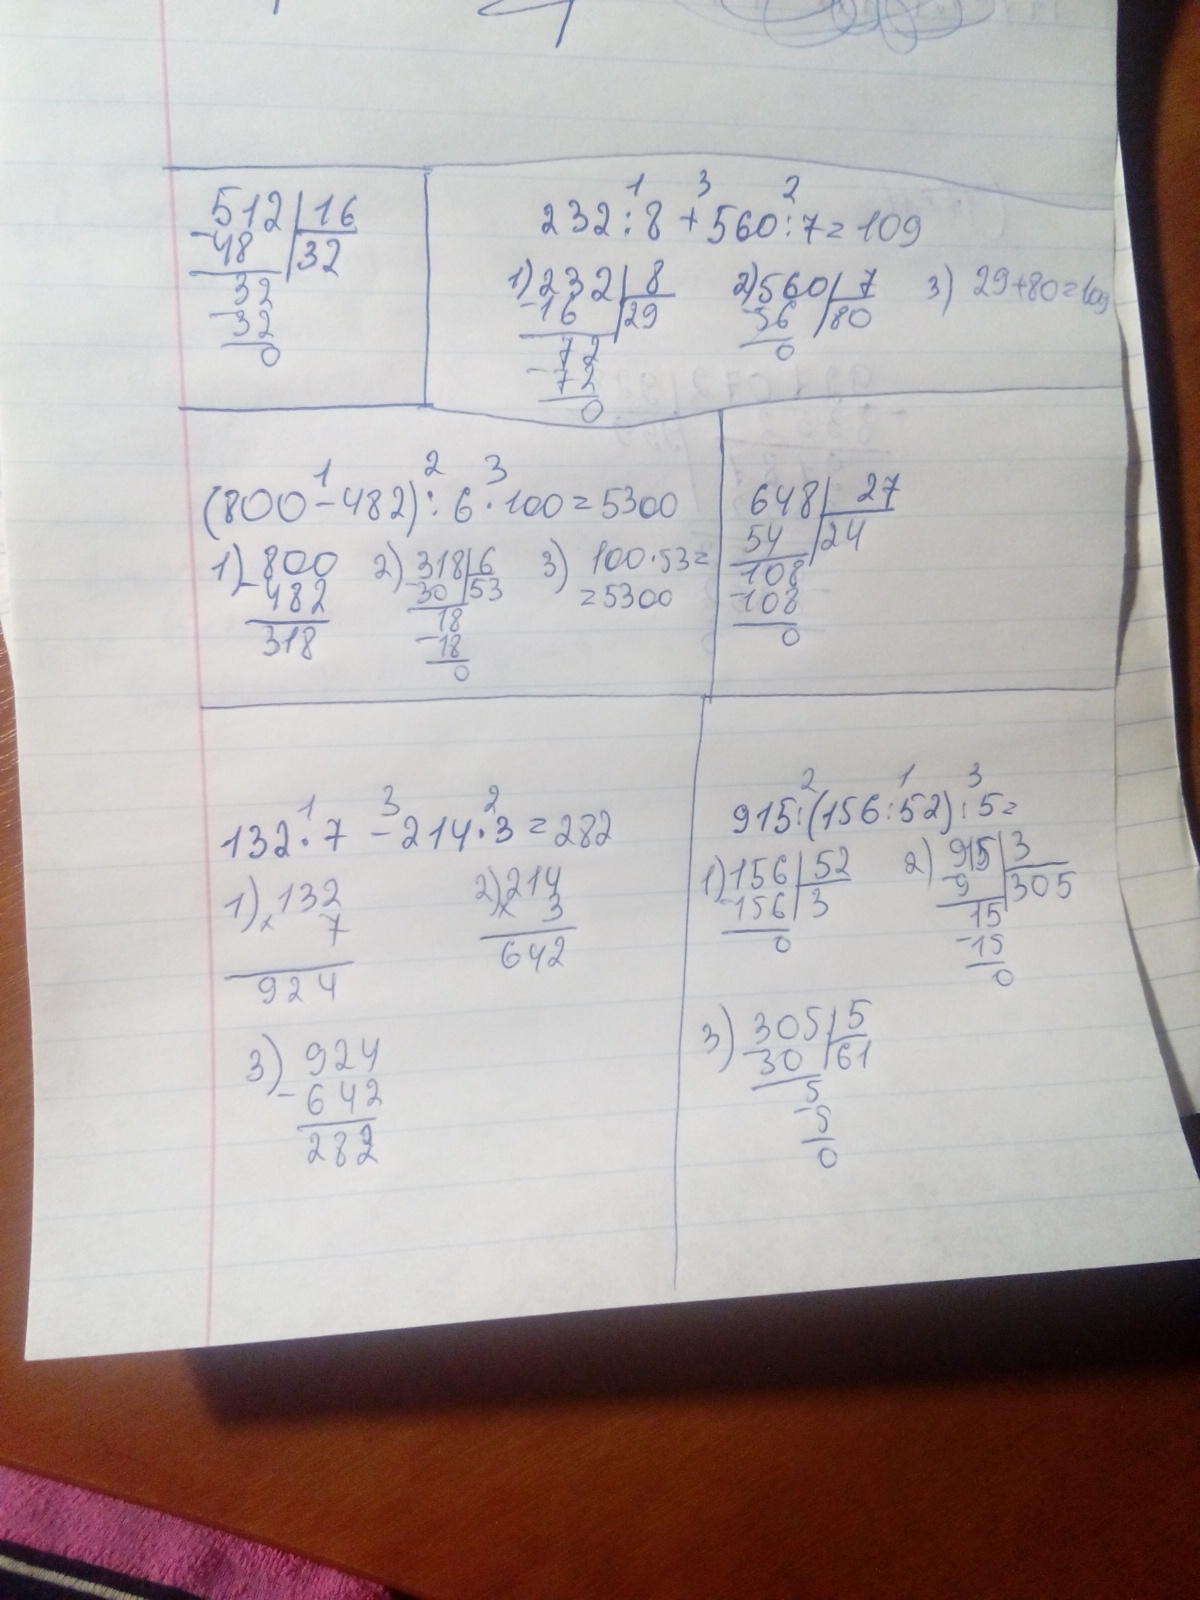 512 | 16
-48 | 32
32
-32
0
1 3 2
232 : 8 + 560 : 7 = 109
1) 232 | 8
-16 | 29
72
-72
0
2) 560 | 7
-56 | 80
0
3) 29+80=109
1 2 3
(800-482) : 6 · 100 = 5300
1) -800
482
318
2) 318 | 6
-30 | 53
18
-18
0
3) 100·53=
=5300
648 | 27
54 | 24
108
-108
0
1 3 2
132·7 - 214·3 = 282
1) x132
7
924
2) x214
3
642
3) 924
-642
282
2 1 3
915:(156:52):5=
1) 156 | 52
-156 | 3
0
2) 915 | 3
-9 | 305
15
-15
0
3) 305 | 5
-30 | 61
5
-5
0